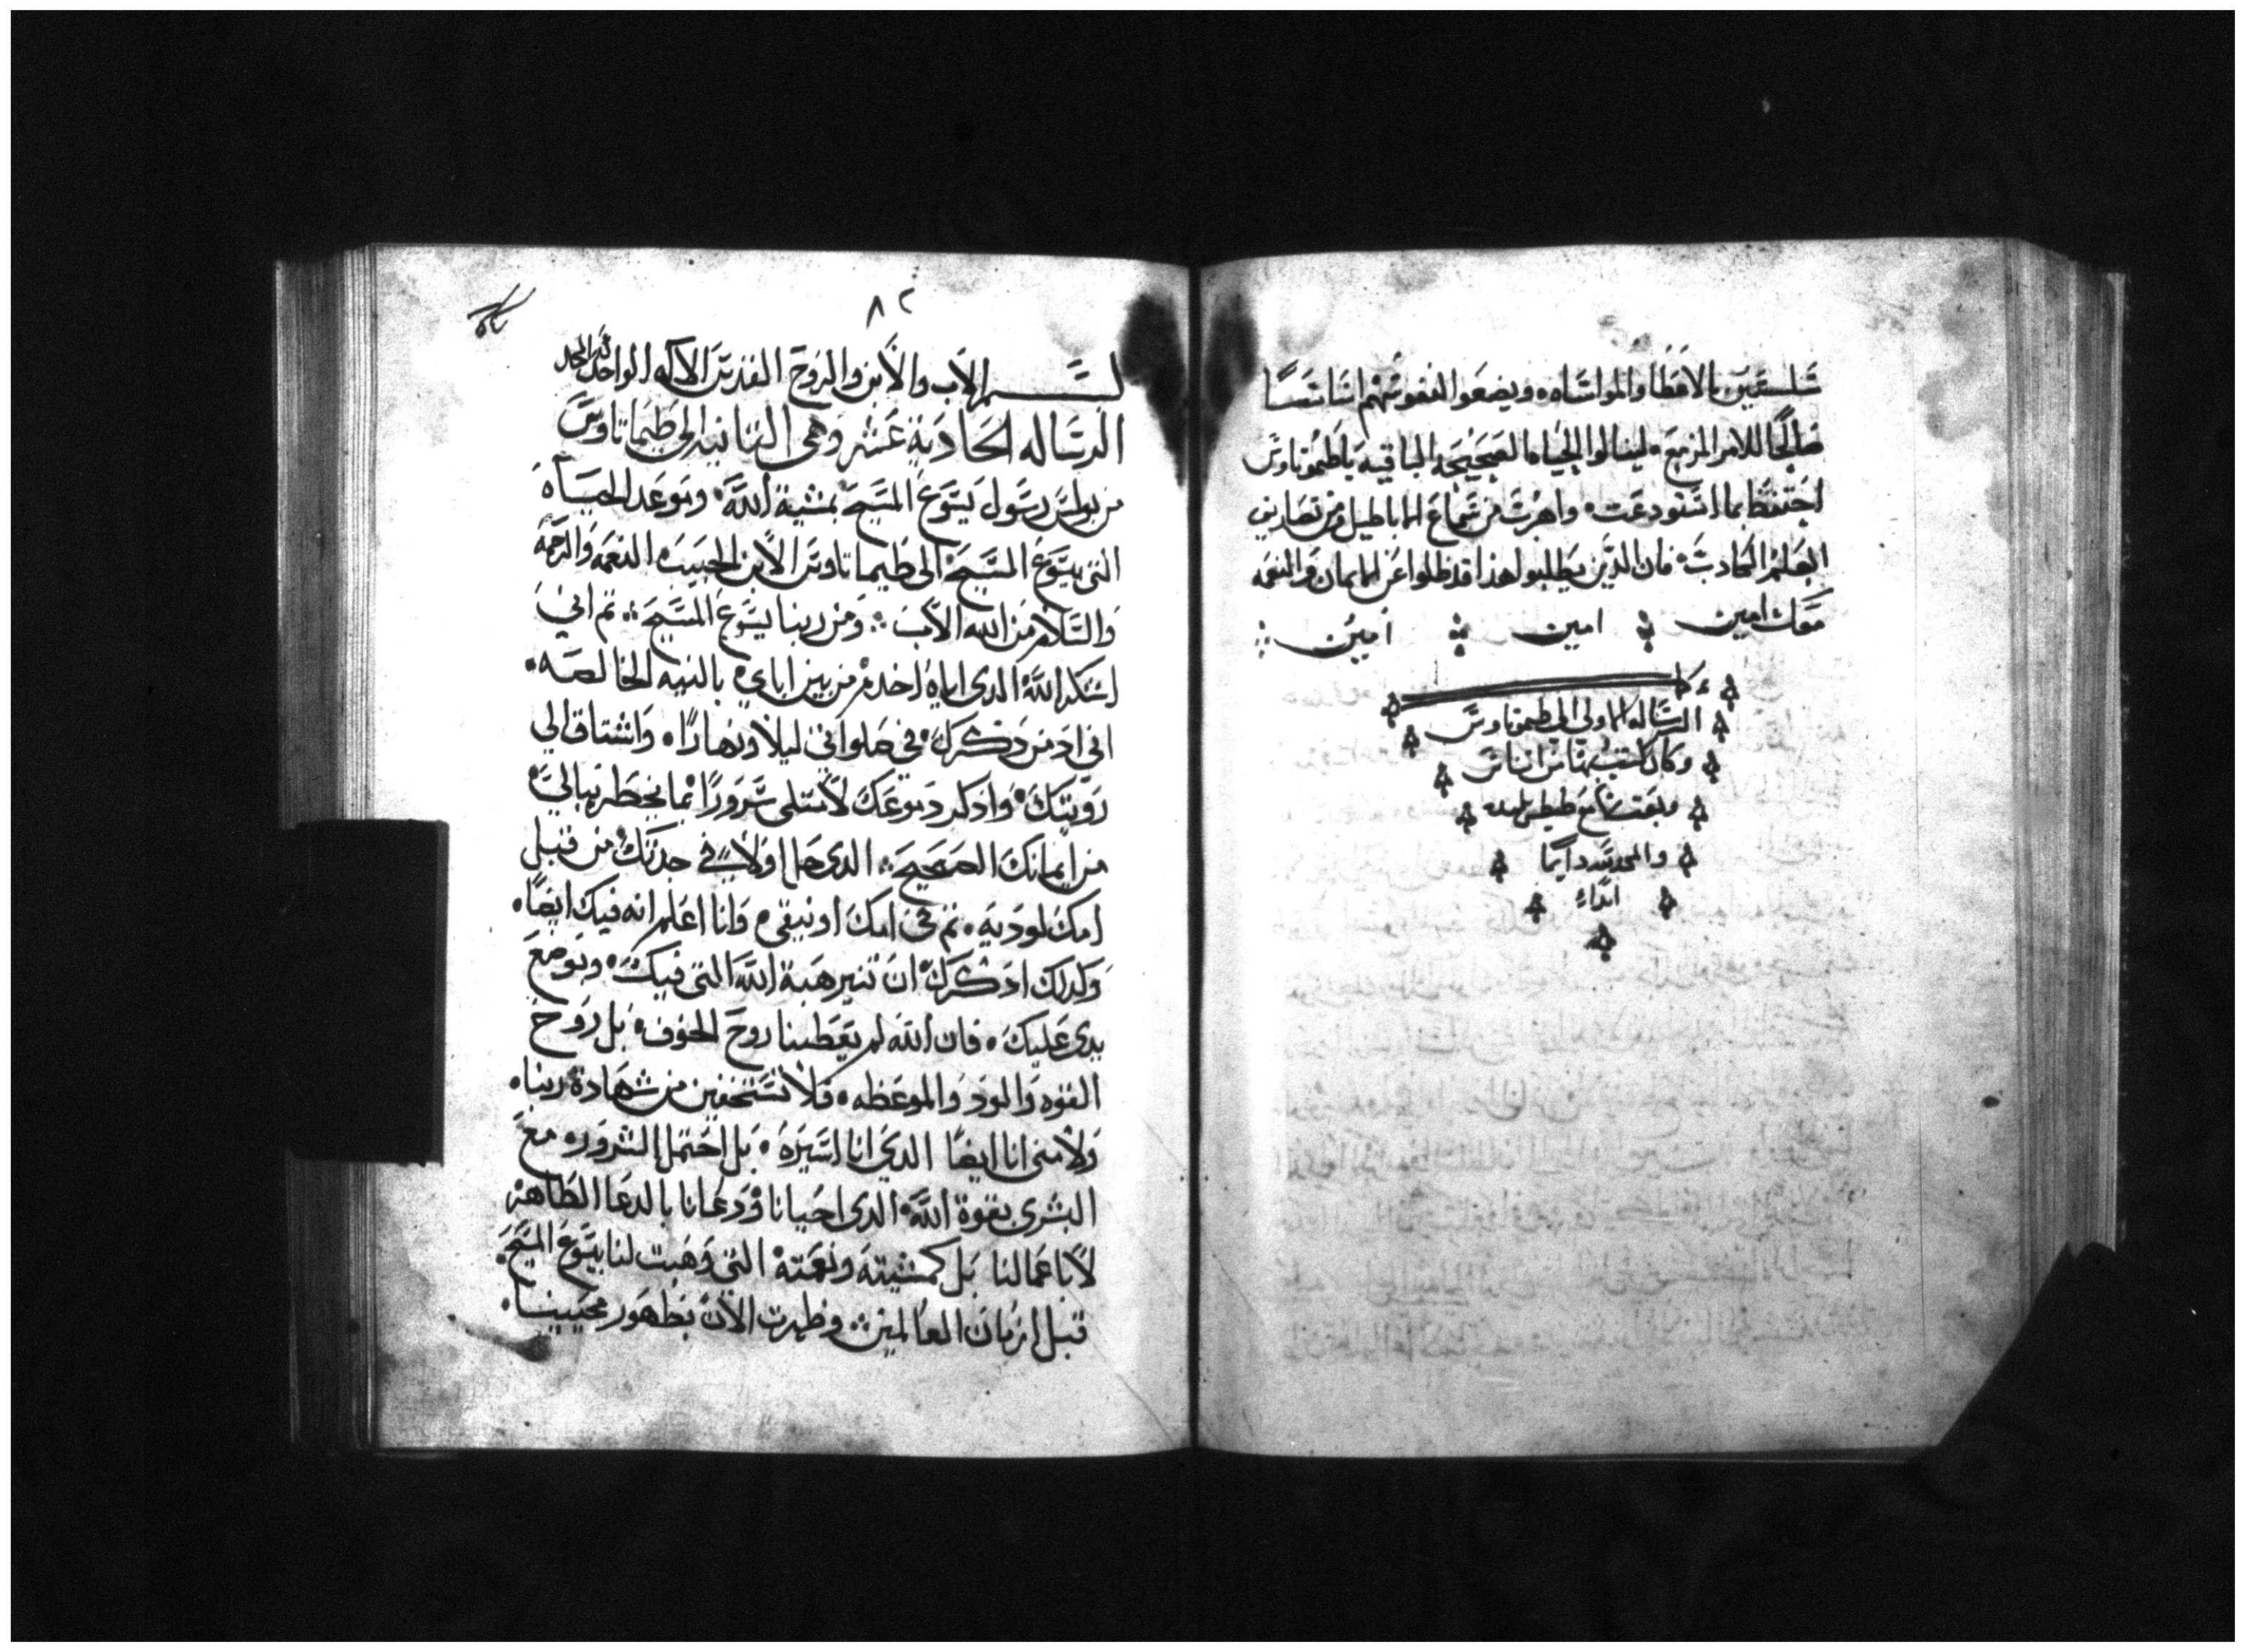 سلسين بالاعطا والمواساه ويضعوا لنفوسهم اساسًا
صالحًا للامر المزمع لينالوا الحياه الصحيحه الباقيه ياطيموتاوس
احتفظ بما استودعت واهرب من سماع الاباطيل ومن تصاريف
العلم الكادب فان الدين يطلبوا هذا قد ظلوا عن الايمان والنعمه
معك امين امين امين
كملت
الرساله الاولي الي طيموتاوس
وكان كتب بها من
وبعت بها مع طيطس تلميده
والمجد لله دايمًا
ابدًا
٨٢
بسم الاب والابن والروح القدس الاله الواحد له المجد
الرساله الحادية عشر وهى الثانيه الي طيماتاوس
من بولس رسول يسوع المسيح بمشية الله وبوعد الحياة
التى بيسوع المسيح الى طيماتاوس الابن الحبيب النعمه والرحمه
والسلام من الله الاب ومن ربنا يسوع المسيح ثم اني
اشكر الله الدى اياه اخدم من بين اباي بالنيه الخالصه
اني ادمن دكرك في صلواتي ليلًا ونهارًا واشتاق الي
رويتك وادكر دموعك لامتلى سرورًا بما يخطر ببالي
من ايمانك الصحيح الدى حل اولًا في جدتك من قبل
امك لوديه ثم في امك اونيقي وانا اعلم انه فيك ايضًا
وكدلك ادكرك ان تنير هبة الله التى فيك وبوضع
يدى عليك فان الله لم يعطينا روح الخوف بل روح
القوه والود والموعظه فلا تستخفين من شهادة ربنا
ولا منى انا ايضًا الدي انا اسيره بل احتمل الشرور مع
البشرى بقوة الله الدى احيانا ودعانا بالدعا الطاهر
لا باعمالنا بل كمشيته ونعمته التى وهبت لنا بيسوع المسيح
قبل ازمان العالمين وظهرت الان بظهور محيينا